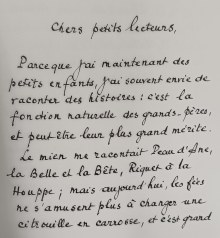 Chers petits lecteurs,
Parce que j'ai maintenant des
petits enfants, j'ai souvent envie de
raconter des histoires : c'est la
fonction naturelle des grands-pères,
et peut être leur plus grand mérite.
Le mien me racontait Peau d'Âne,
la Belle et la Bête, Riquet à la
Houppe ; mais aujourd'hui, les fées
ne s'amusent plus à changer une
citrouille en carrosse, et c'est grand